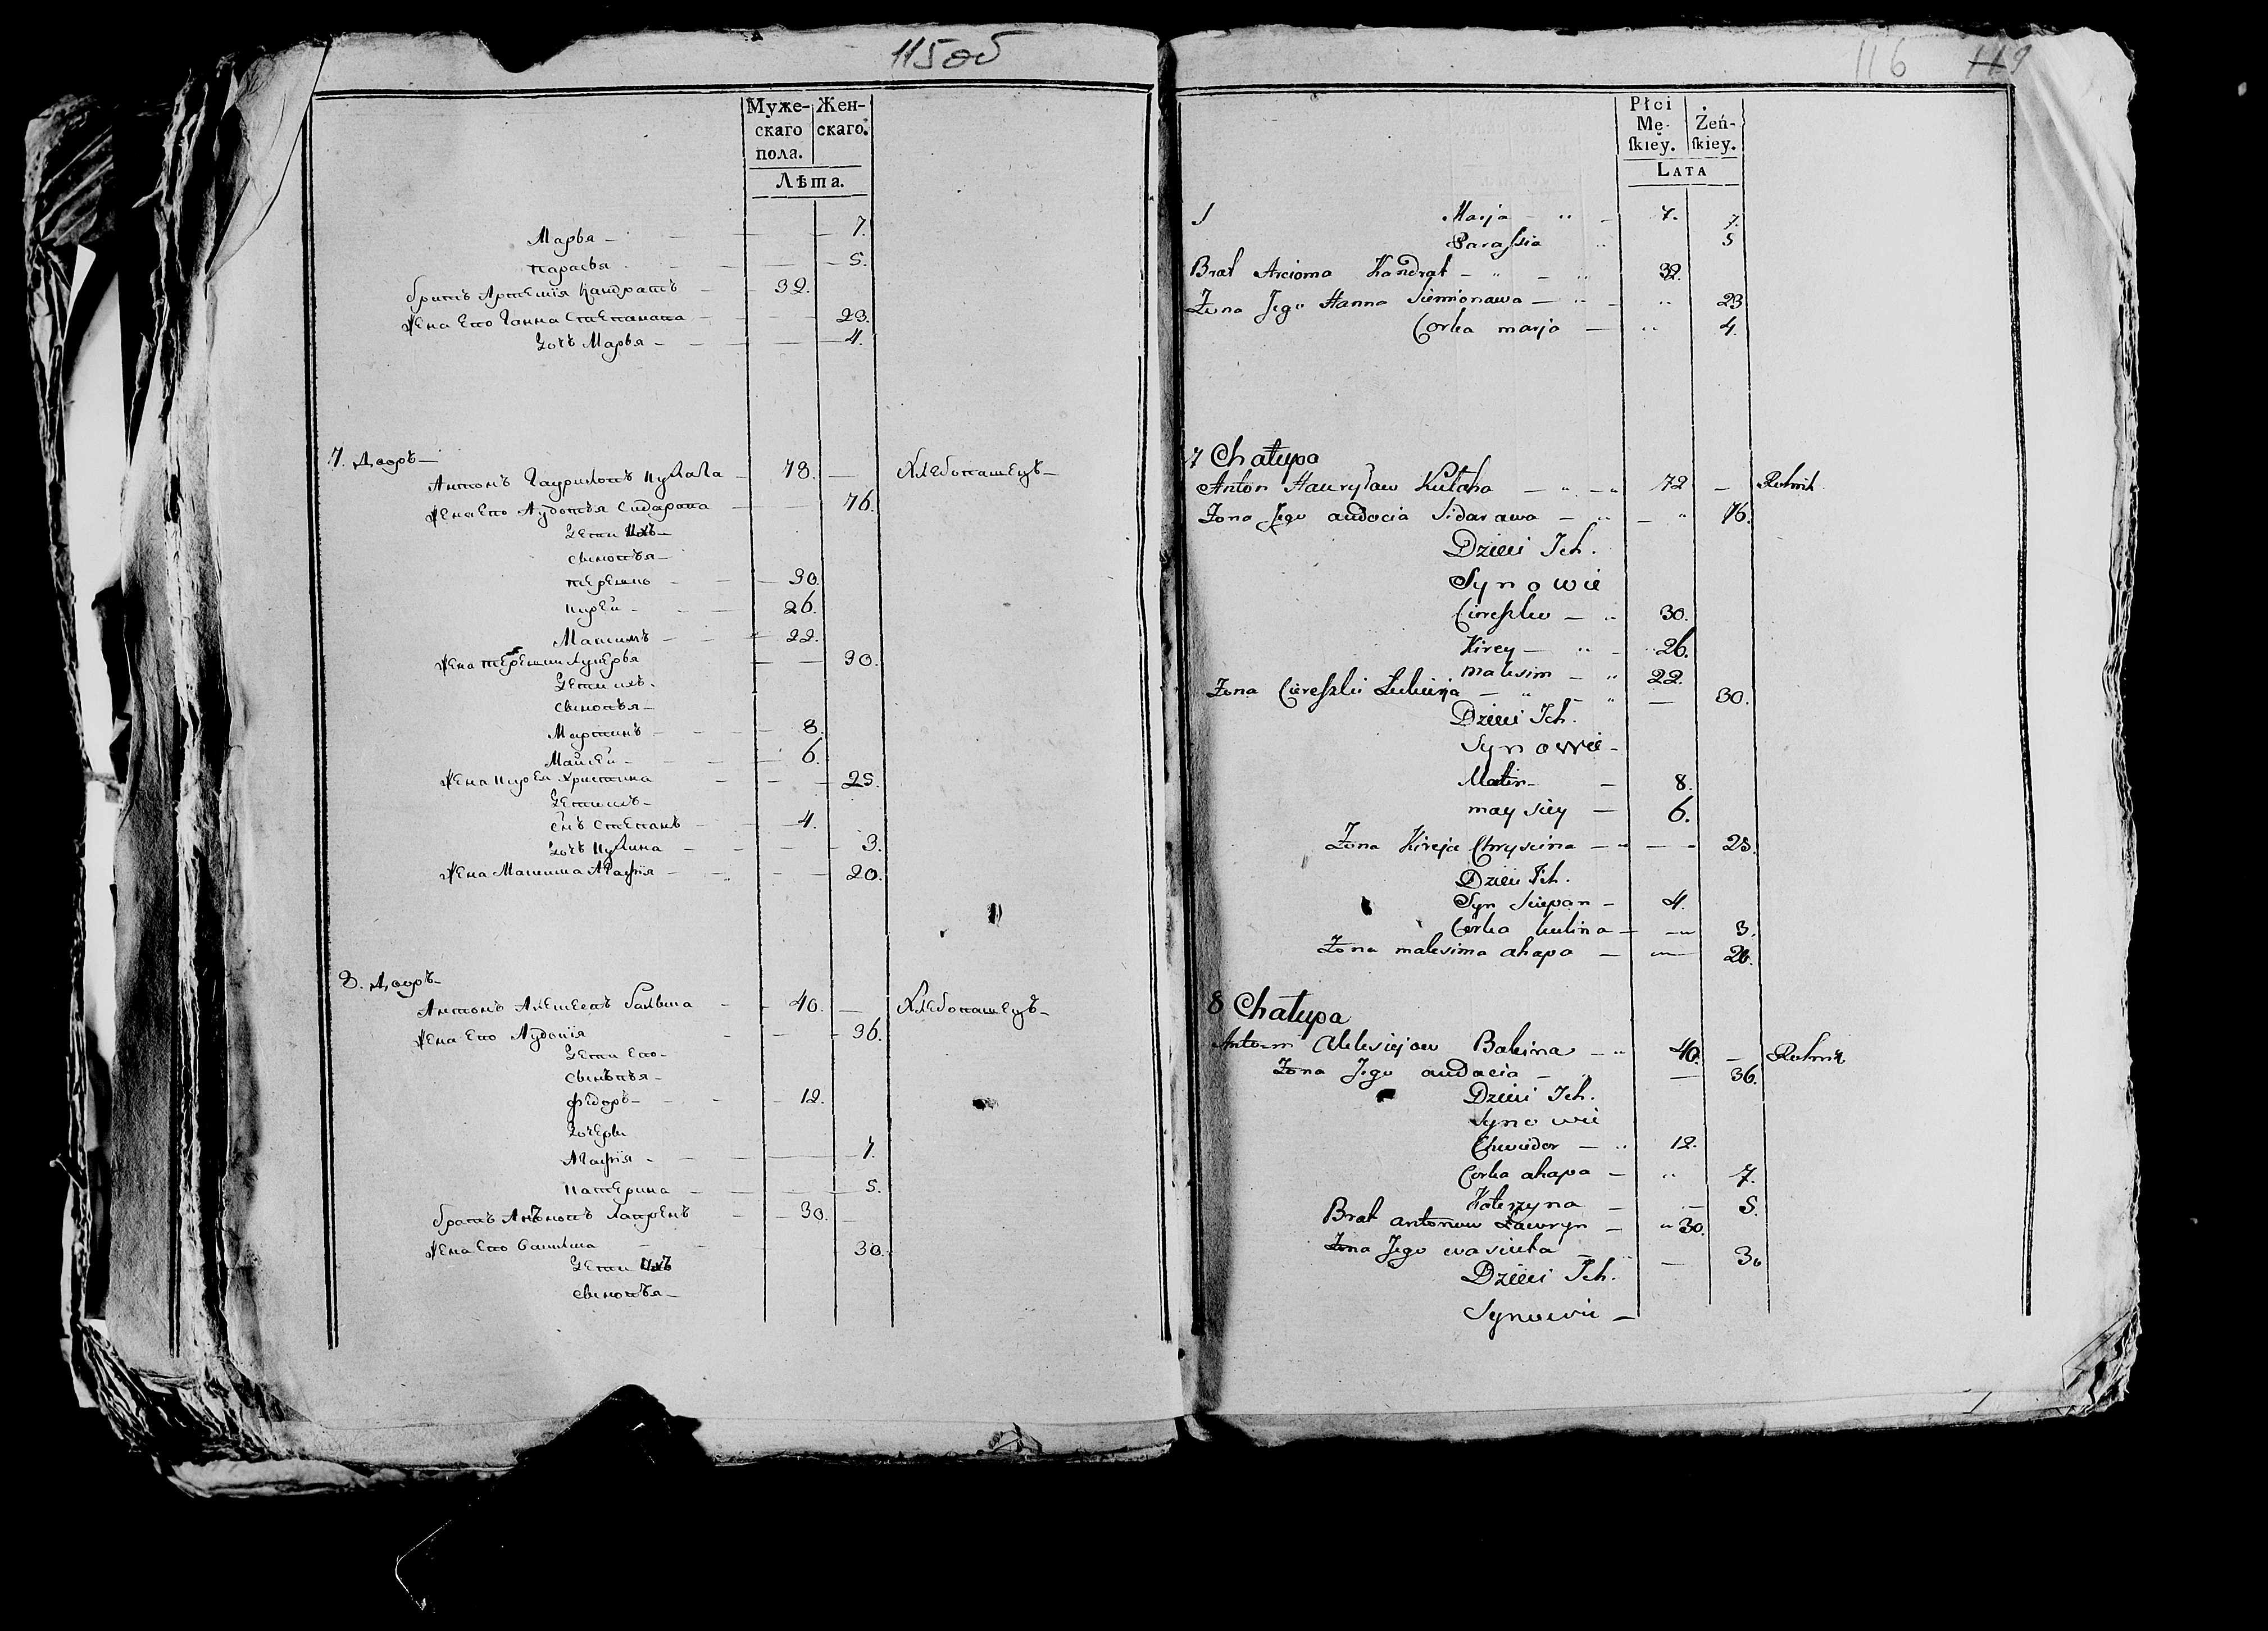 115 об
Муже-скаго пола. Жен-скаго.
Лѣта.
Марья — 7.
Парасья — 5.
братъ Артемія Кандратъ — 32.
жена его Ганна Степанава — 23.
дочь Марья — 4.
7. Дворъ —
Антонъ Гауриловъ Кулага — 78. — Хлебопашецъ —
жена его Аудотья Сидарова — 76.
дети ихъ —
сыновья —
Терешко — 30.
Кирей — 26.
Максимъ — 22.
жена Терешки Лукерья — 30.
дети ихъ.
сыновья —
Мартинъ — 8.
Майсей — 6.
жена Кирея Христина — 25.
дети ихъ —
снъ Степанъ — 4.
дочь Кулина — 3.
жена Максима Агафія — 20.
8. Дворъ —
Антонъ Алексеевъ — 40. — Хлебопашецъ —
жена его Аудокія — 36.
дети его —
сыновья —
Фёдоръ — 12.
дочери
Агафія — 7.
Катерина — 5.
братъ Лауренъ — 30. —
жена его — 30.
дети ихъ
сыновья —
116 119
Płci Mę-skiey. Żeń-skiey.
LATA
Marja — 7. 7.
Parassia 5
Brat Arcioma Kandrat — 32.
Żona Jego Hanna Siemionawa — 23
Corka marja — 4.
7 Chałupa
Anton Hawryław Kułaha — 72 — Rolnik
Żona Jego audocia Sidarawa — 76.
Dzieci Ich.
Synowie
Cireszko — 30.
Kirey — 26.
maksim — 22.
Żona Cireszki Lukieria — 30.
Dzieci Ich.
Synowie —
Matin — 8.
maysiey — 6.
Żona Kireja Chryscina — 25.
Dzieci Ich.
Syn Sciepan — 4.
Corka kulina — 3.
Żona maksima ahapa — 20.
8 Chałupa
Antoni Aleksiejow Bakina — 40. — Rolnik
Żona Jego audacia — 36.
Dzieci Ich.
Synowie
Chwiedor — 12.
Corka ahapa — 7.
Katerzyna — 5.
Brat antonow Lawryn — 30.
Żona Jego wasiuta — 30
Dzieci Ich.
Synowie —